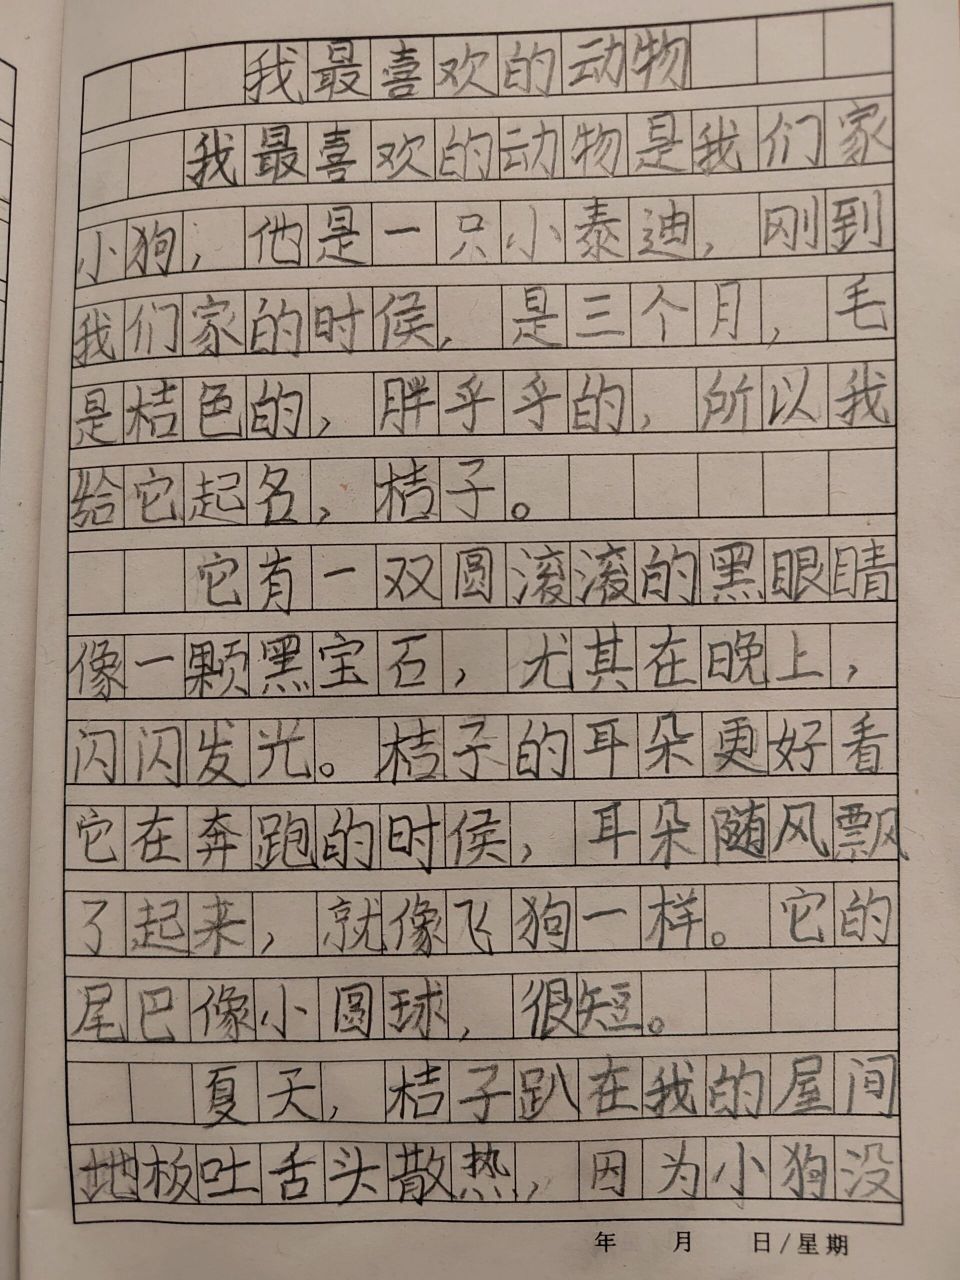 我最喜欢的动物
我最喜欢的动物是我们家
小狗，他是一只小泰迪，刚到
我们家的时侯，是三个月，毛
是桔色的，胖乎乎的，所以我
给它起名，桔子。
它有一双圆滚滚的黑眼睛
像一颗黑宝石，尤其在晚上，
闪闪发光。桔子的耳朵更好看
它在奔跑的时侯，耳朵随风飘
了起来，就像飞狗一样。它的
尾巴像小圆球，很短。
夏天，桔子趴在我的屋间
地板吐舌头散热，因为小狗没
年 月 日/星期